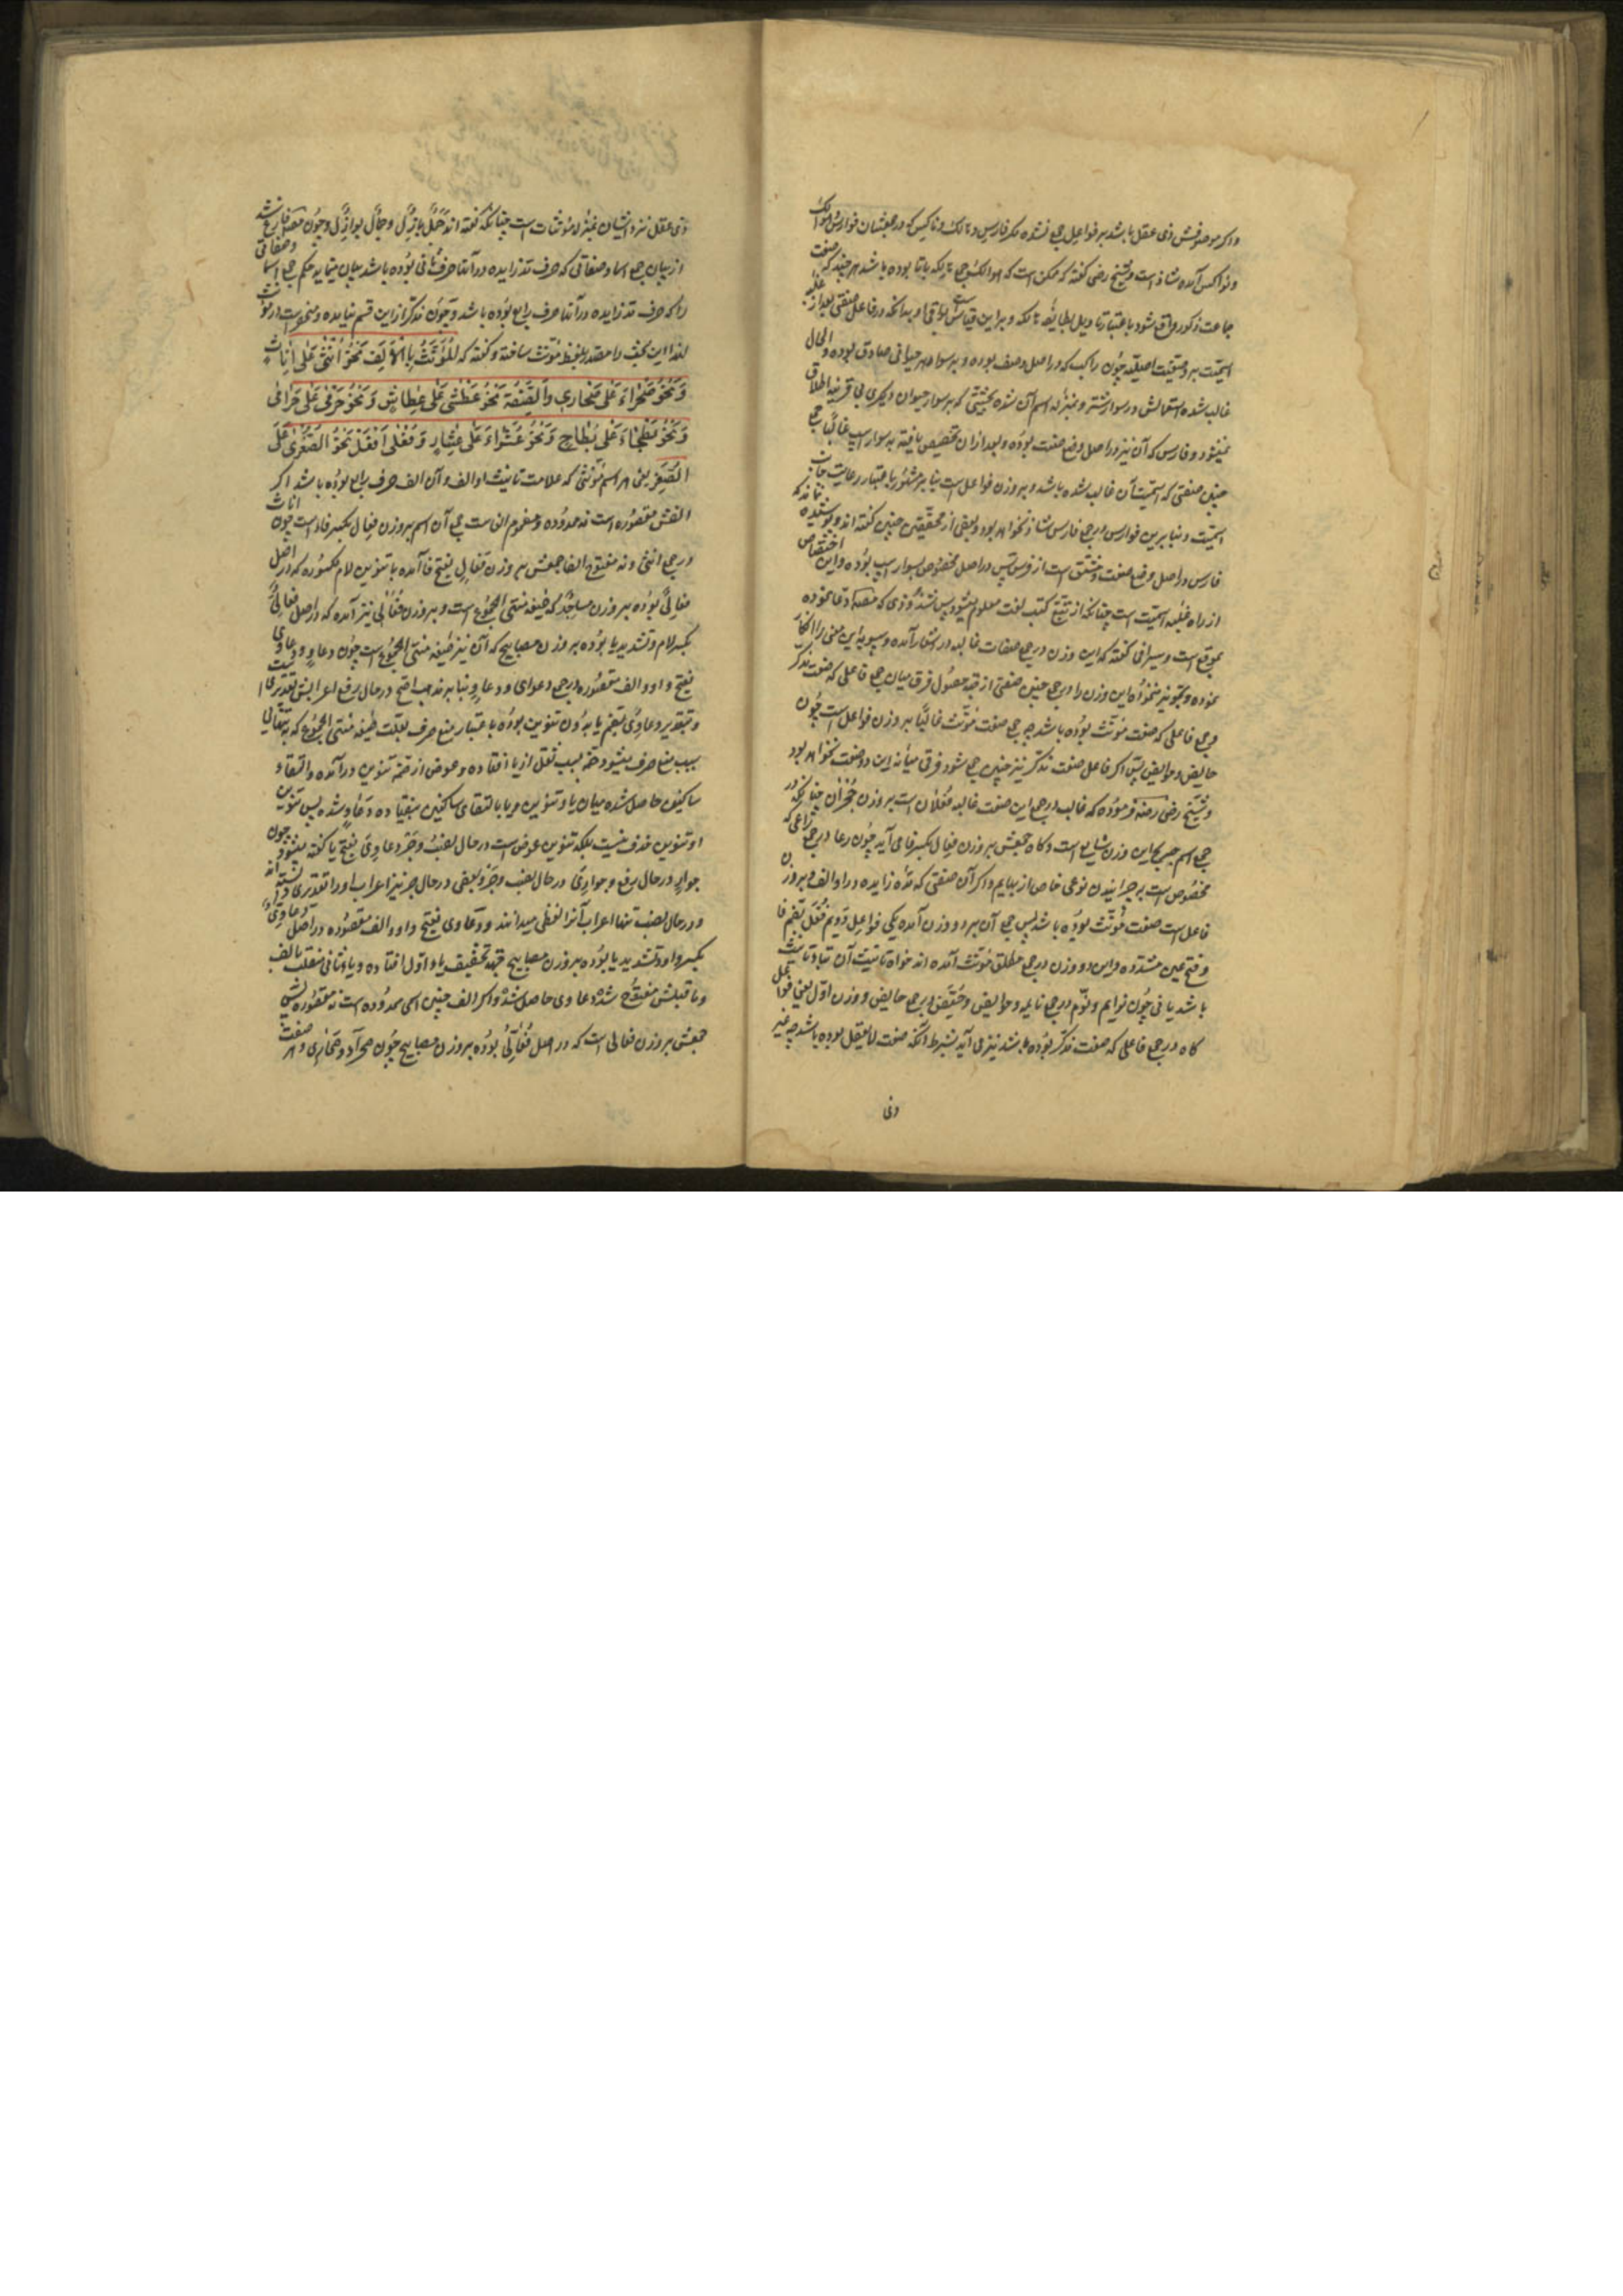 واکر موصوفش ذی عقل باشد بر فواعل جمع نشده مکر فارس و هالک و ناکس که در جمعشان فوارس و هوالک
و نواکس آمده شاذ است و شیخ رضی کفته که ممکن است که هوالک جمع هالکه باتا بوده باشد هر چند که صفت
جماعت ذکور واقع شود باعتبار تاویل بطایفه هالکه و بر این قیاس بواقی و بدانکه در فاعل صفتی بعد از غلبه
اسمیت بر وصفیت اصلیه چون راکب که در اصل وصف بوده و بر سوار هر حیوانی صادق بوده و الحال
غالب شده استعمالش در سوار شتر و بمنزله اسم آن شده بحیثیتی که بر سوار حیوان دیکری بی قرینه اطلاق
نمیشود و فارس که آن نیز در اصل وضع صفت بوده و بعد ازان تخصیص یافته به سوار اسب غالبا جمع
چنین صفتی که اسمیت آن غالب شده باشد بر وزن فواعل است بنابر مشهور باعتبار رعایت جانب
اسمیت و بنابرین فوارس در جمع فارس شاذ نخواهد بود و بعضی از محققین چنین کفته اند و پوشیده نماند که
فارس در اصل وضع صفت و مشتق است از فرس پس در اصل مخصوص بسوار اسب بوده و این اختصاص
از راه غلبه اسمیت نیست چنانکه از تتبع کتب لغت معلوم میشود پس شذوذی که مصنف ادعا نموده
بموقع است و سیرافی کفته که این وزن در جمع صفات غالبه در اشعار آمده و سیبویه این معنی را انکار
نموده و تجویز ننموده این وزن را در جمع چنین صفتی از جهة حصول فرق میان جمع فاعلی که صفت مذکر
و جمع فاعلی که صفت مونث بوده باشد چه جمع صفت مونث غالبا بر وزن فواعل است چون
حایض و حوایض پس اکر فاعل صفت مذکر نیز چنین جمع شود فرق میانه این دو صفت نخواهد بود
و شیخ رضی رضه فرموده که غالب در جمع این صفت غالبه فعلان است بر وزن حجران چنانکه در
جمع اسم صریح این وزن شایع است و کاه جمعش بر وزن فعال بکسر فا می آید چون رعا در جمع راعی که
مخصوص است بر چرانیدن نوعی خاص از بهایم و اکر آن صفتی که مده زایده در او الف و بر وزن
فاعل است صفت مونث بوده باشد پس جمع آن بر دو وزن آمده یکی فواعل دویم فعل بضم فا
و فتح عین مشدده و این دو وزن در جمع مطلق مونث آمده اند خواه تانیث آن بتا و تانیث
باشد یا نی چون نوایم و نوم در جمع نایمه و حوایض و حیض در جمع حایض و وزن اول یعنی فواعل
کاه در جمع فاعلی که صفت مذکر بوده باشد نیز می آید بشرط آنکه صفت لا یعقل بوده باشد چه غیر
ذی
ذی عقل نزد ایشان بمنزله مونثات است چنانکه کفته اند جمل بازل و جمال بوازل و چون مصنف فارغ شد
از بیان جمع اسما و صفاتی که حرف مد زایده در آنها حرف ثانی بوده باشد بیان مینماید حکم جمع اسما و صفاتی
را که حرف مد زایده در آنها حرف رابع بوده باشد و چون مذکر از این قسم نیامده و منحصر است در مونث
لهذا این بحث را مصدر بلفظ مونث ساخته و کفته که المُؤَنَّثُ بِالأَلِفِ نَحْوُ أُنْثٰی عَلٰی إِنَاثٍ
وَنَحْوُ صَحْرَاءَ عَلٰی صَحَارِی وَالصِّفَةُ نَحْوُ عَطْشٰی عَلٰی عِطَاشٍ وَنَحْوُ حَرْمٰی عَلٰی حَرَامٰی
وَنَحْوُ بَطْحَاءَ عَلٰی بِطَاحٍ وَنَحْوُ عُشَرَاءَ عَلٰی عِشَارٍ وَفُعْلٰی أَفْعَلَ نَحْوُ الصُّغْرٰی عَلٰی
الصُّغَرِ یعنی هر اسم مونثی که علامت تانیث او الف و آن الف حرف رابع بوده باشد اکر
الفش مقصوره است نه ممدوده و مضموم الفا است جمع آن اسم بر وزن فعال بکسر فاء است چون اناث
در جمع انثی و نه مفتوح الفا جمعش بر وزن فعال بفتح فا آمده با تنوین لام مکسوره که در اصل
فعالی بوده بر وزن مساجد که صیغه منتهی الجموع است و بر وزن فعالی نیز آمده که در اصل فعالی
بکسر لام و تشدید یا بوده بر وزن مصابیح که آن نیز صیغه منتهی الجموع است چون دعاو و دعاوی
بفتح واو و الف مقصوره در جمع دعوی و دعاو بنابر مذهب اصح در حال رفع اعرابش تقدیریست
و بتقدیر دعاوی بضم یا بدون تنوین بوده باعتبار منع صرف بعلت صیغه منتهی الجموع که به تنهائی
سبب منع صرف میشود ضمه بسبب ثقل از یا افتاده و عوض از ضمه تنوین درآمده و التقاء
ساکنین حاصل شده میان یا و تنوین و یا بالتقای ساکنین بیفتاده دعاو شده پس تنوین
او تنوین صرف نیست بلکه تنوین عوض است در حال نصب و جر دعاوی بفتح یا کفته میشود چون
جوار در حال رفع و جواری در حال نصب و جر و بعضی در حال جر نیز اعراب او را تقدیری دانسته اند
و در حال نصب تنها اعراب آنرا لفظی میدانند و دعاوی بفتح واو و الف مقصوره در اصل دعاوی
بکسر واو و تشدید یا بوده بر وزن مصابیح جهة تخفیف یاء اول افتاده و یاء ثانی منقلب بالف
و ما قبلش مفتوح شده دعاوی حاصل شد و اکر الف چنین اسمی ممدوده است نه مقصوره پس
جمعش بر وزن فعالی است که در اصل فعالی بوده بر وزن مصابیح چون صحراء و صحاری و هر صفت